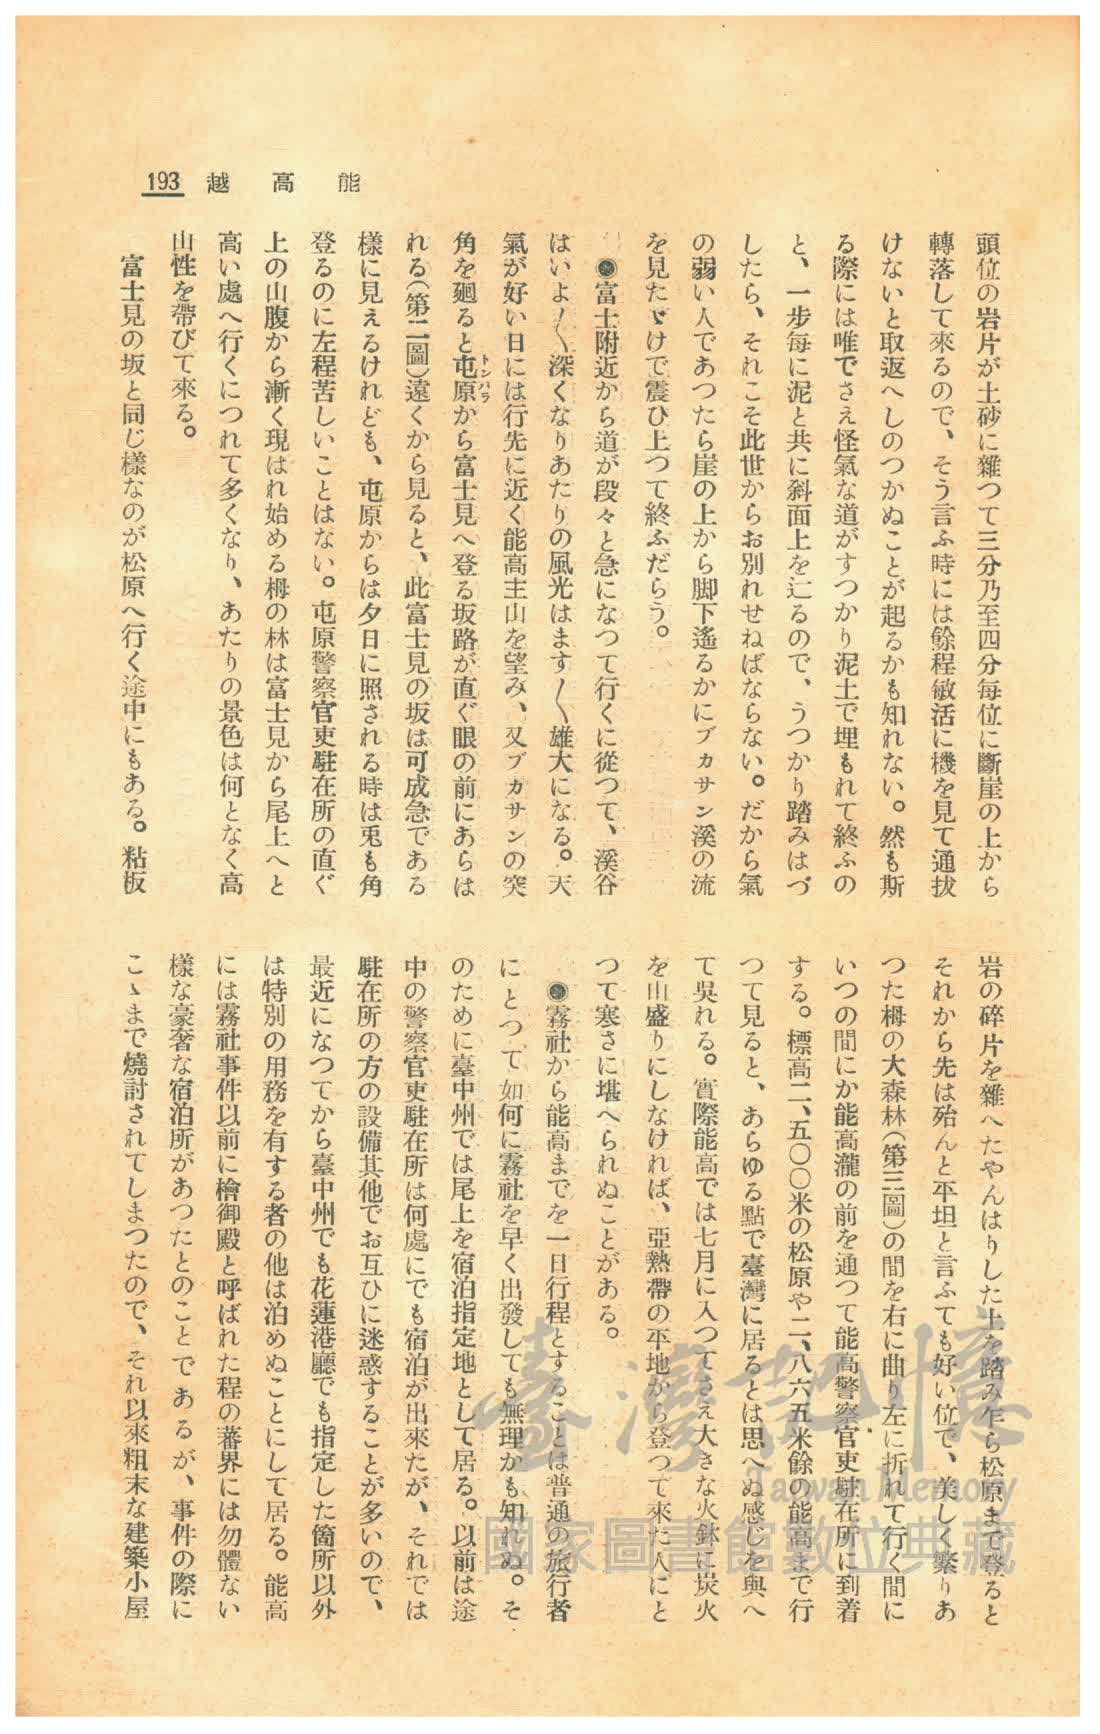 193 越高能
頭位の岩片が土砂に雜つて三分乃至四分每位に斷崖の上から
轉落して來るので、そう言ふ時には餘程敏活に機を見て通拔
けないと取返へしのつかぬことが起るかも知れない。然も斯
る際には唯でさえ怪氣な道がすつかり泥土で埋もれて終ふの
と、一步每に泥と共に斜面上を辷るので、うつかり踏みはづ
したら、それこそ此世からお別れせねばならない。だから氣
の弱い人であつたら崖の上から脚下遙るかにブカサン溪の流
を見たゞけで震ひ上つて終ふだらう。
◉富士附近から道が段々と急になつて行くに從つて、溪谷
はいよ〱深くなりあたりの風光はます〱雄大になる。天
氣が好い日には行先に近く能高主山を望み、又ブカサンの突
角を廻ると屯原から富士見へ登る坂路が直ぐ眼の前にあらは
トンバラ
れる(第二圖)遠くから見ると、此富士見の坂は可成急である
樣に見えるけれども、屯原からは夕日に照される時は兎も角
登るのに左程苦しいことはない。屯原警察官吏駐在所の直ぐ
上の山腹から漸く現はれ始める栂の林は富士見から尾上へと
高い處へ行くにつれて多くなり、あたりの景色は何となく高
山性を帶びて來る。
富士見の坂と同じ樣なのが松原へ行く途中にもある。粘板
岩の碎片を雜へたやんはりした土を踏み乍ら松原まで登ると
それから先は殆んと平坦と言ふても好い位で、美しく繁りあ
つた栂の大森林(第三圖)の間を右に曲り左に折れて行く間に
いつの間にか能高瀧の前を通つて能高警察官吏駐在所に到着
する。標高二、五〇〇米の松原や二、八六五米餘の能高まで行
つて見ると、あらゆる點で臺灣に居るとは思へぬ感じを與へ
て吳れる。實際能高では七月に入つてさえ大きな火鉢に炭火
を山盛りにしなければ、亞熱帶の平地から登つて來た人にと
つて寒さに堪へられぬことがある。
◉霧社から能高までを一日行程とすることは普通の旅行者
にとつて如何に霧社を早く出發しても無理かも知れぬ。そ
のために臺中州では尾上を宿泊指定地として居る。以前は途
中の警察官吏駐在所は何處にでも宿泊が出來たが、それでは
駐在所の方の設備其他でお互ひに迷惑することが多いので、
最近になつてから臺中州でも花蓮港廳でも指定した箇所以外
は特別の用務を有する者の他は泊めぬことにして居る。能高
には霧社事件以前に檜御殿と呼ばれた程の蕃界には勿體ない
樣な豪奢な宿泊所があつたとのことであるが、事件の際に
こゝまで燒討されてしまつたので、それ以來粗末な建築小屋
臺灣記憶
Taiwan Memory
國家圖書館數位典藏